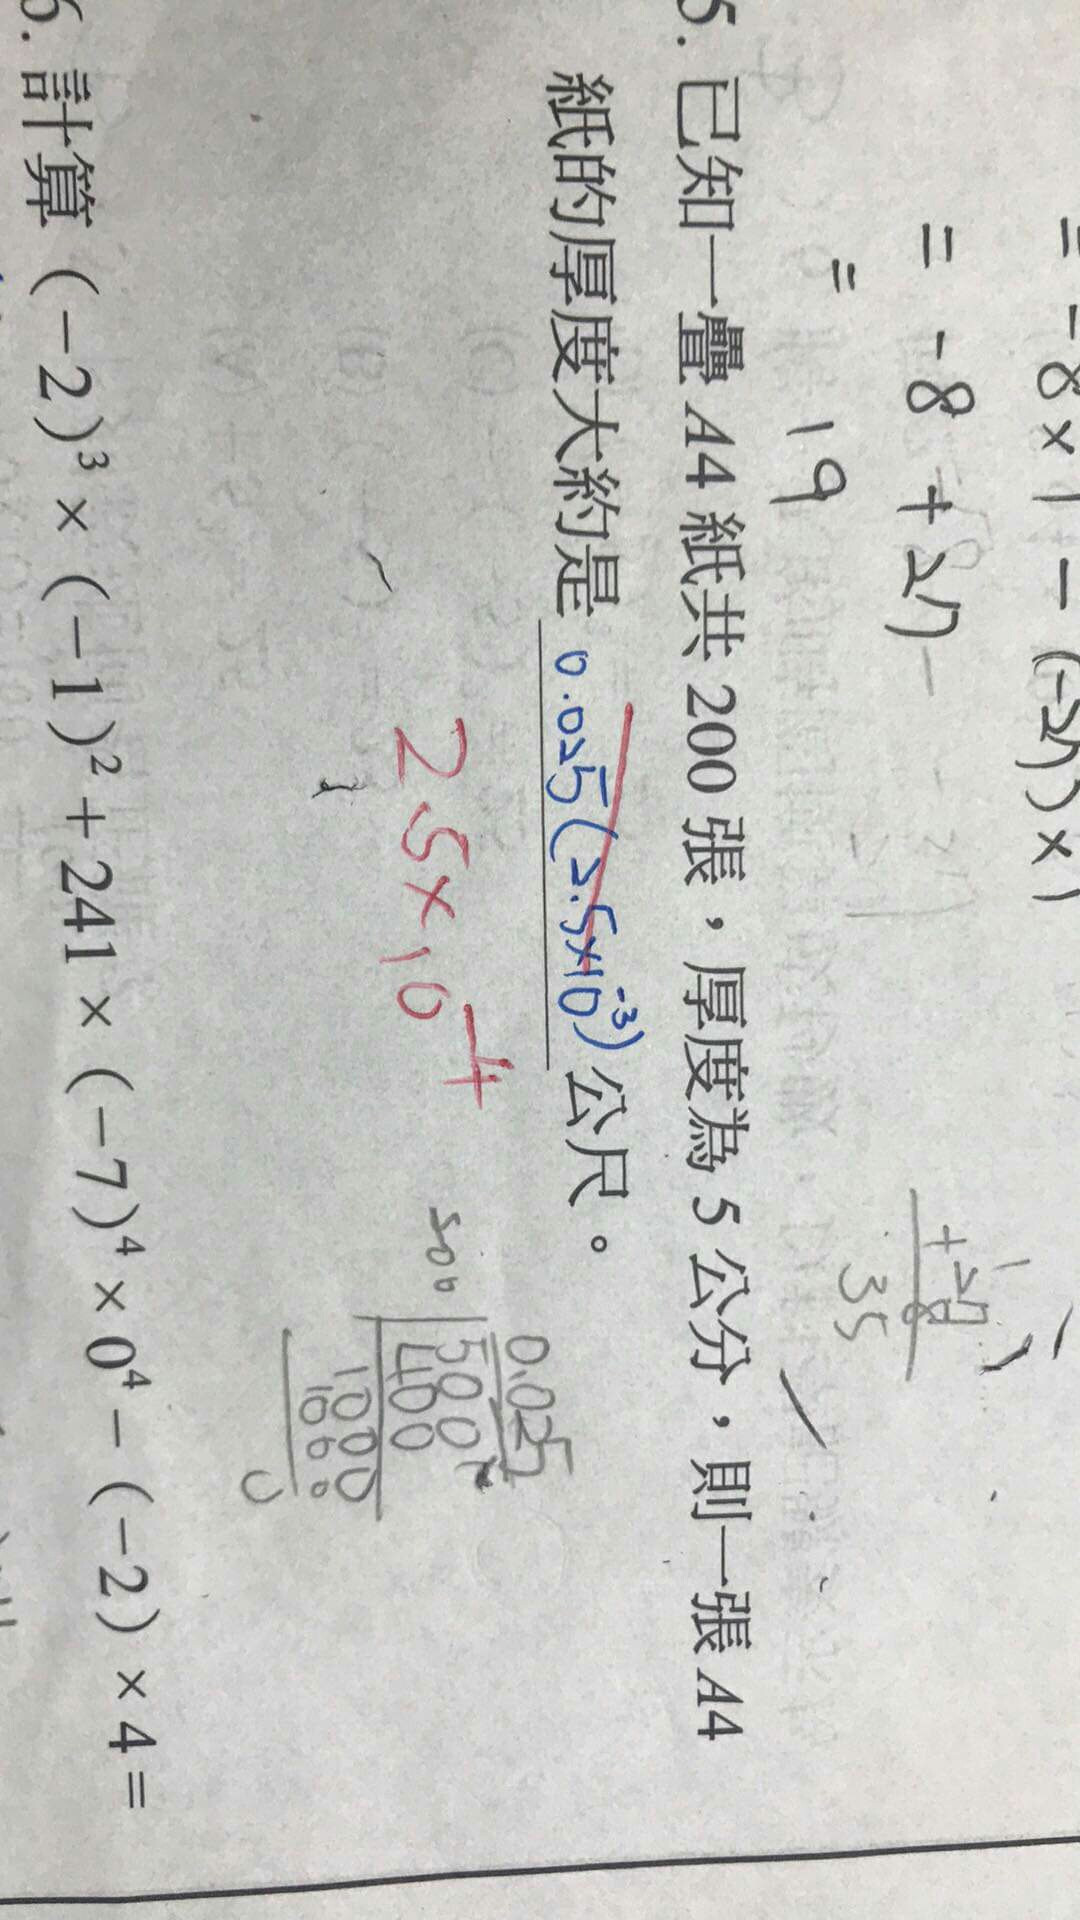 = -8 × 1 - (-27) × 1
= -8 + 27
= 19
+27
8
35
5. 已知一疊 A4 紙共 200 張，厚度為 5 公分，則一張 A4
紙的厚度大約是 0.025(2.5×10⁻³) 公尺。
2.5×10⁻⁴
0.025
200 500
400
1000
1000
0
6. 計算 (-2)³ × (-1)² + 241 × (-7)⁴ × 0⁴ - (-2) × 4 =